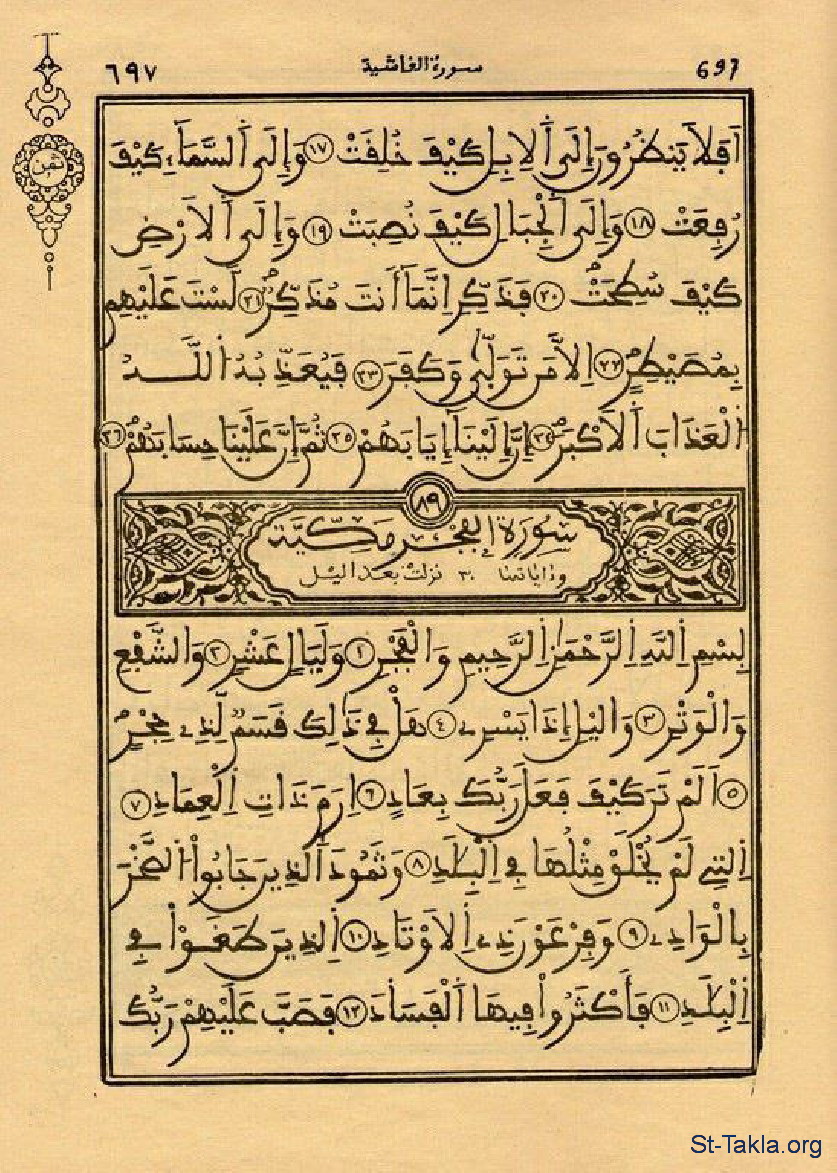 ٦٩٧ سورة الغاشية 697
ثمن
اَفَلَا يَنظُرُونَ إِلَى اَ۬لِابِلِ كَيْفَ خُلِقَتْ ١٧ وَإِلَى اَ۬لسَّمَآءِ كَيْفَ
رُفِعَتْ ١٨ وَإِلَى اَ۬لْجِبَالِ كَيْفَ نُصِبَتْ ١٩ وَإِلَى اَ۬لَارْضِ
كَيْفَ سُطِحَتْ ٢٠ فَذَكِّرِ اِنَّمَآ أَنتَ مُذَكِّرٌ ٢١ لَّسْتَ عَلَيْهِم
بِمُصَيْطِرٍ ٢٢ اِلَّا مَن تَوَلّ۪ىٰ وَكَفَرَ ٢٣ فَيُعَذِّبُهُ اُ۬للَّهُ
اُ۬لْعَذَابَ اَ۬لَاكْبَرَ ٢٤ إِنَّ إِلَيْنَآ إِيَابَهُمْ ٢٥ ثُمَّ إِنَّ عَلَيْنَا حِسَابَهُم ٢٦
٨٩
سُورَةُ الفَجْرِ مَكِّيَّة
وءاياتها ٣٠ نزلت بعد اليل
بِسْمِ اِ۬للَّهِ اِ۬لرَّحْمَٰنِ اِ۬لرَّحِيمِ وَالْفَجْرِ ١ وَلَيَالٍ عَشْرٍ ٢ وَالشَّفْعِ
وَالْوَتْرِ ٣ وَاليْلِ إِذَا يَسْرِۦ ٤ هَلْ فِے ذَٰلِكَ قَسَمٌ لِّذِے حِجْرٍ
٥ اَلَمْ تَرَ كَيْفَ فَعَلَ رَبُّكَ بِعَادٍ ٦ اِرَمَ ذَاتِ اِ۬لْعِمَادِ ٧
اِ۬لتِے لَمْ يُخْلَقْ مِثْلُهَا فِے اِ۬لْبِلَٰدِ ٨ وَثَمُودَ اَ۬لذِينَ جَابُوا۟ اُ۬لصَّخْرَ
بِالْوَادِۦ ٩ وَفِرْعَوْنَ ذِے اِ۬لَاوْتَادِ ١٠ اِ۬لذِينَ طَغَوْا۟ فِے
اِ۬لْبِلَٰدِ ١١ فَأَكْثَرُوا۟ فِيهَا اَ۬لْفَسَادَ ١٢ فَصَبَّ عَلَيْهِمْ رَبُّكَ
St-Takla.org